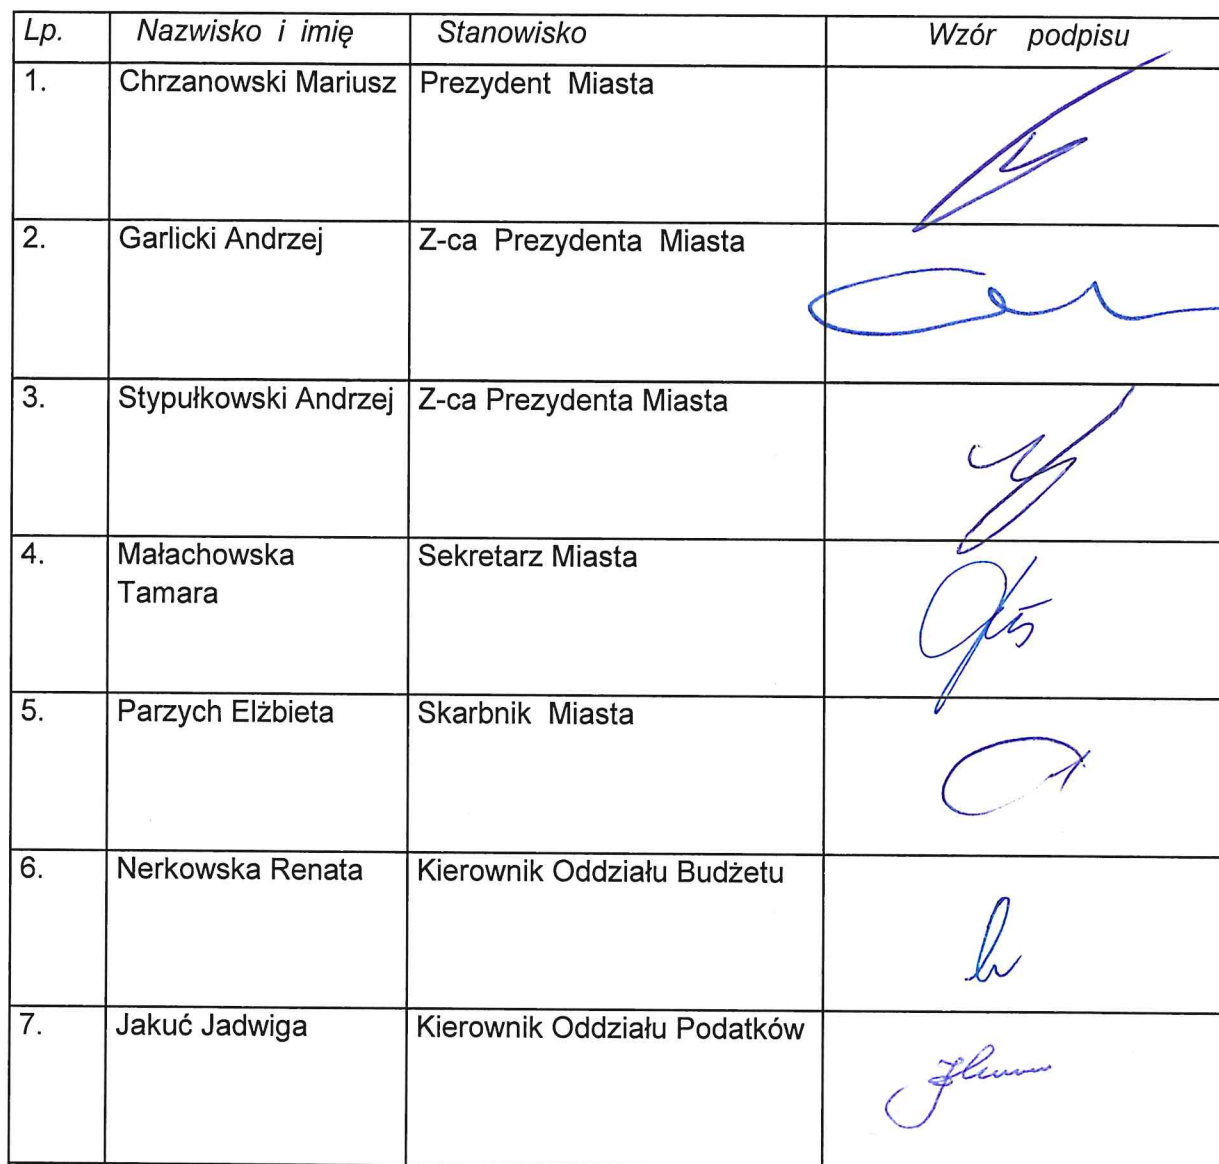 Lp. Nazwisko i imię Stanowisko Wzór podpisu
1. Chrzanowski Mariusz Prezydent Miasta
2. Garlicki Andrzej Z-ca Prezydenta Miasta
3. Stypułkowski Andrzej Z-ca Prezydenta Miasta
4. Małachowska Sekretarz Miasta
Tamara
5. Parzych Elżbieta Skarbnik Miasta
6. Nerkowska Renata Kierownik Oddziału Budżetu
7. Jakuć Jadwiga Kierownik Oddziału Podatków